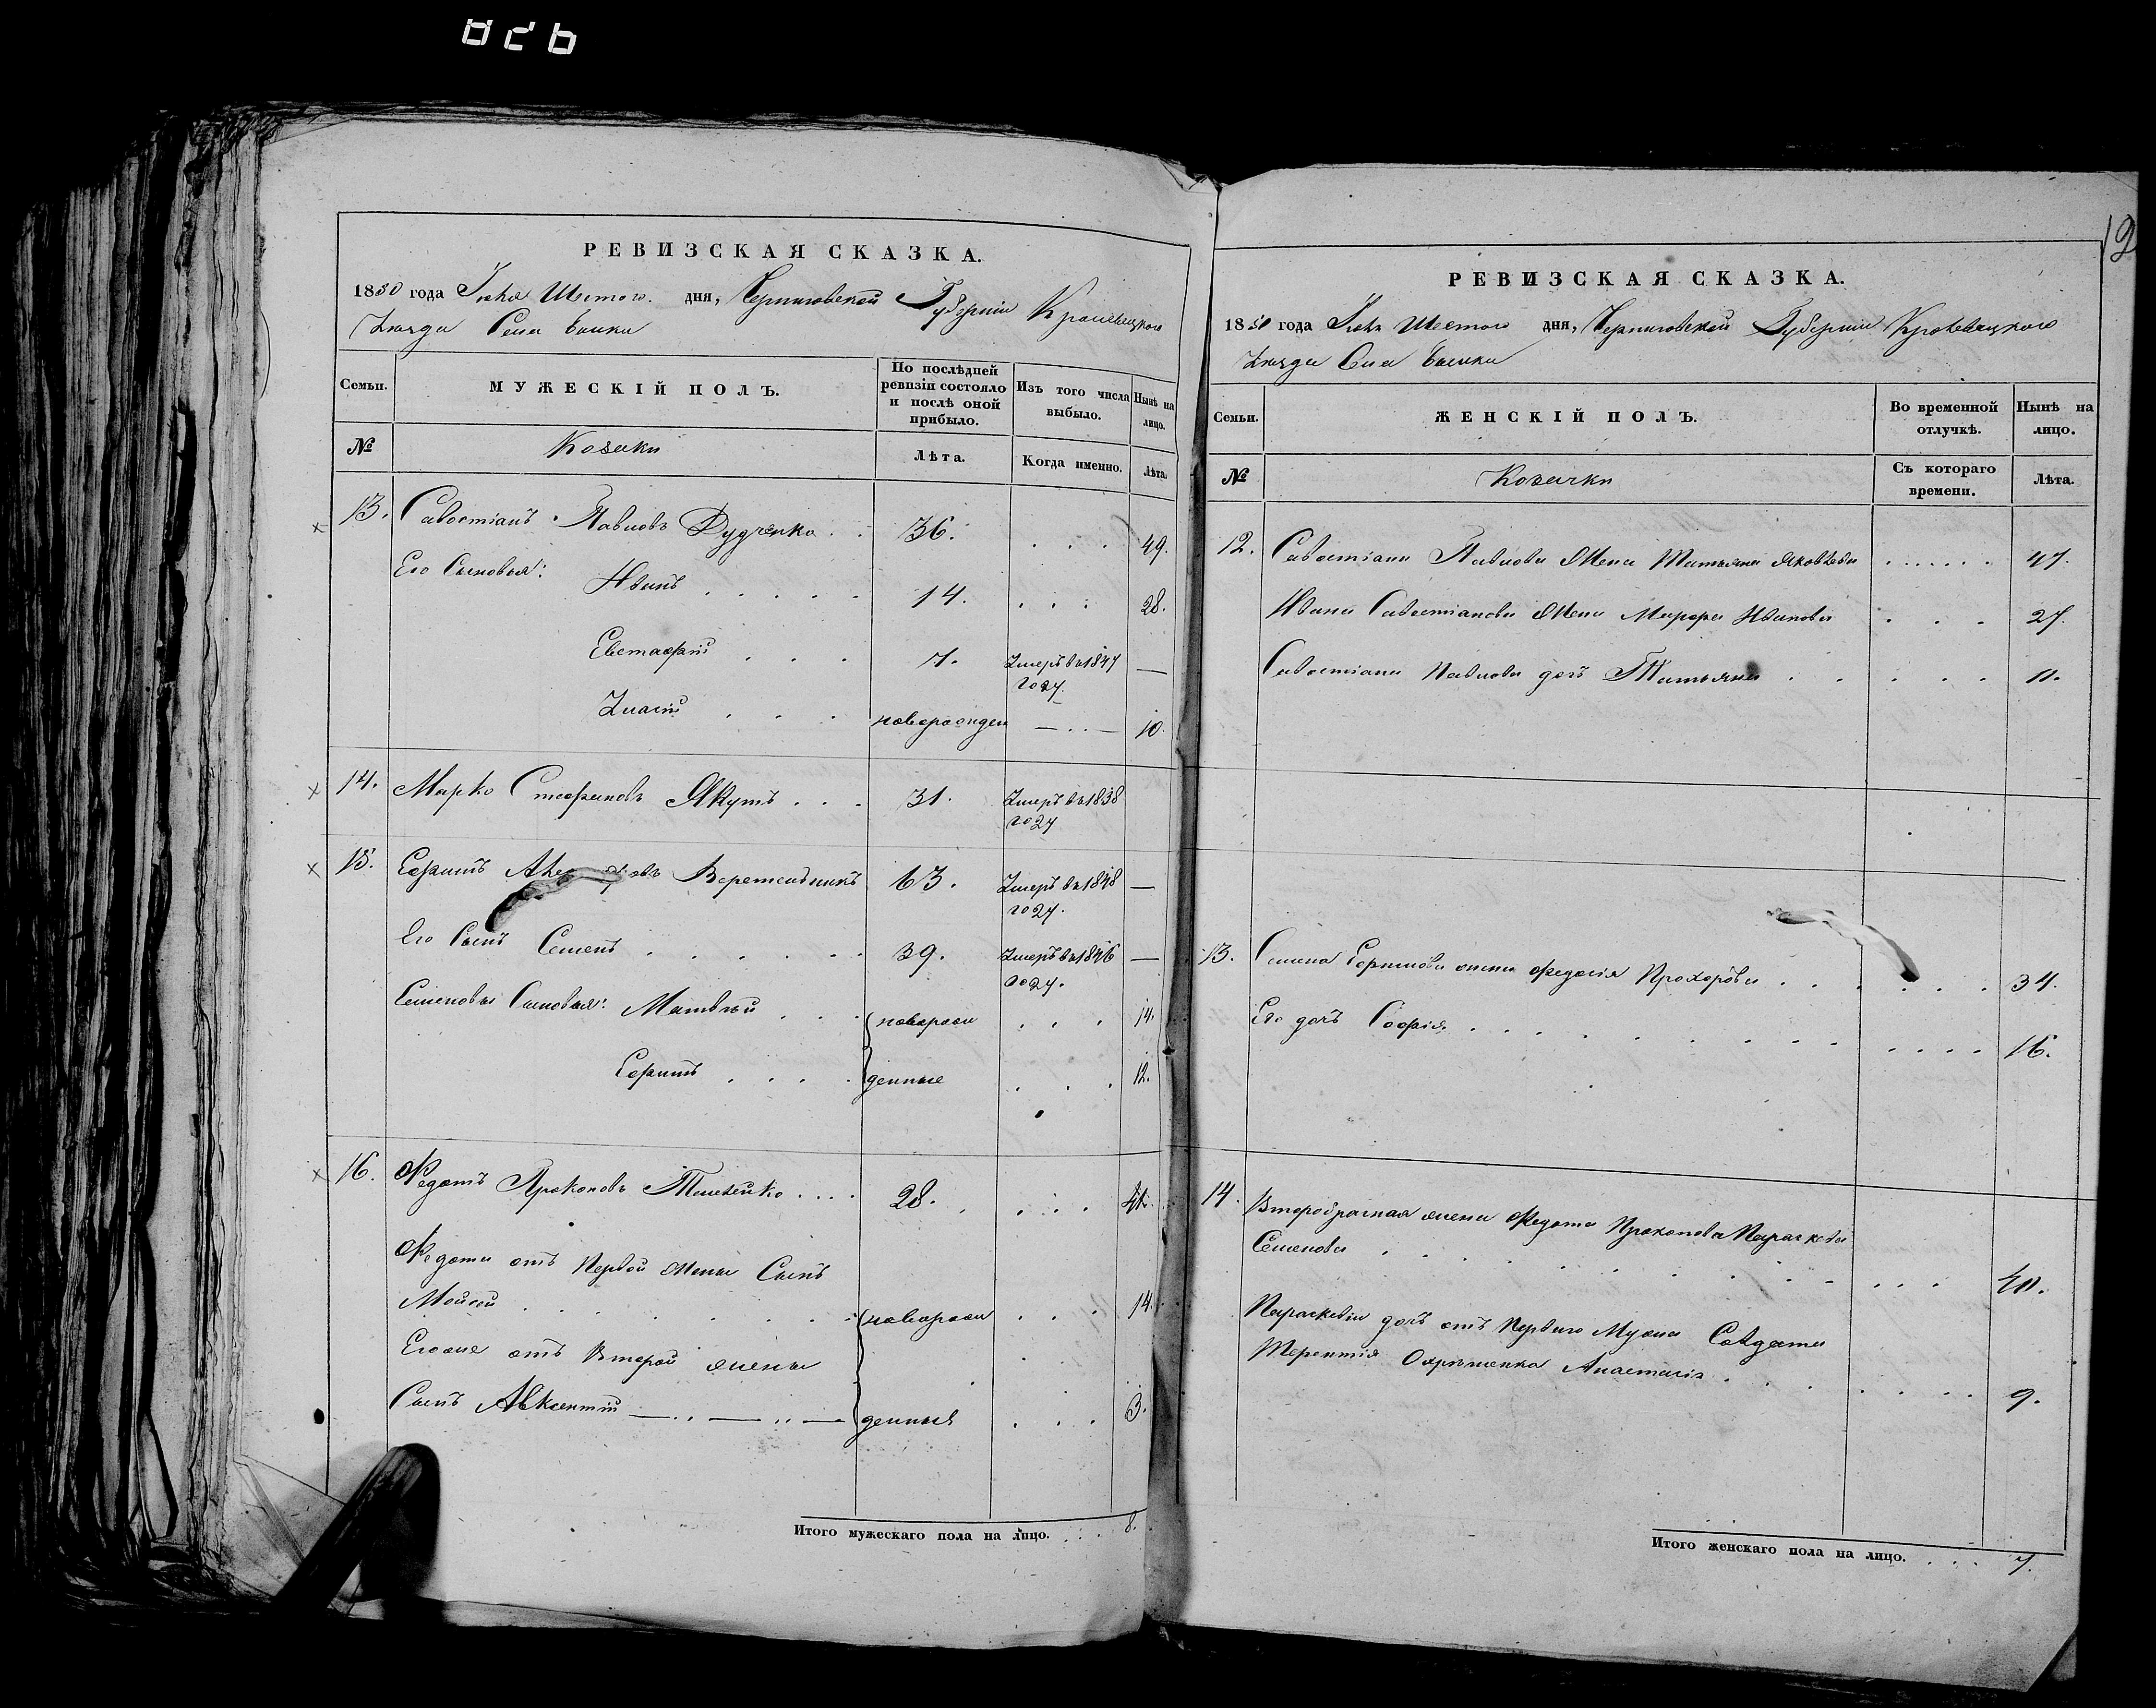 РЕВИЗСКАЯ СКАЗКА.
1850 года Іюня Шестого дня, Черниговской Губерніи Кролевецкого
Уѣзда Села
Семьи.
МУЖЕСКІЙ ПОЛЪ.
По послѣдней ревизіи состояло и послѣ оной прибыло.
Изъ того числа выбыло.
Нынѣ на лицо.
№
Козаки
Лѣта.
Когда именно.
Лѣта.
13. Савостіанъ Павловъ Дудченко . . 36. . . . 49.
Его Сыновья: Иванъ . . . . . 14. . . . 28.
Евстафій . . . 7. Умеръ въ 1847 году. —
Власій . . . новорожден — . . — 10.
14. Марко Стефановъ Якутъ . . . 31. Умеръ въ 1838
году
15. Ефимъ Веретельникъ 63. Умеръ въ 1848 —
году.
Его Сынъ Семенъ . . . . . . 39. Умеръ въ 1846 —
году.
Семеновы Сыновья: Матвѣй . . . новорож . . . 14.
Ефимъ . . . . денные . . . 12.
16. Федотъ Прокоповъ . . . . 28. . . . . 41.
Федота отъ Первой Жены Сынъ
Мойсей . . . . . . новорож . . . 14.
Егоже отъ Второй жены
Сынъ Авксентій — . . — . . — денные . . . 3.
Итого мужескаго пола на лицо. . . . 8.
19
РЕВИЗСКАЯ СКАЗКА.
1850 года Іюня Шестого дня, Черниговской Губерніи Кролевецкого
Уѣзда Села
Семьи.
ЖЕНСКІЙ ПОЛЪ.
Во временной отлучкѣ.
Нынѣ на лицо.
№
Козачки
Съ котораго времени.
Лѣта.
12. Савостіана Павлова Жена Татьяна Яковлева . . . . . . 47.
Ивана Савостіанова Жена Марфа Иванова . . . 27.
Савостіана Павлова дочь Татьяна . . . . . 11.
13. Семена Ефимова жена Федосія Прохорова . . . . . . 34.
Его дочь Софія . . . . . . . . . . . . 16.
14. Второбрачная жена Федота Прокопова Параскева
Семенова . . . . . . . . . . . 40.
Параскевіи дочь отъ Перваго Мужа Солдата
Терентія Анастасія . . . . . . . 9.
Итого женскаго пола на лицо. . . . 7.